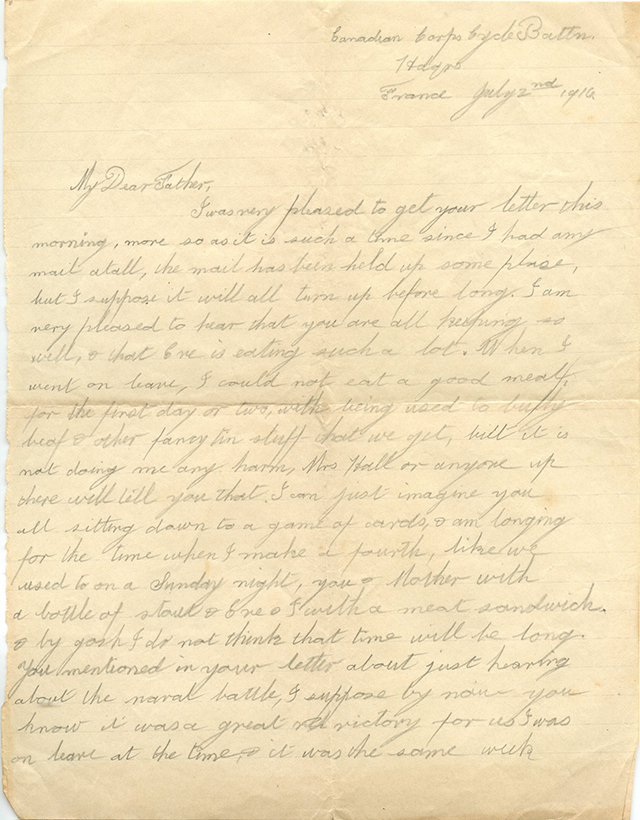 Canadian Corps Cycle Battn.
Hdqrs
France July 2nd 1916
My Dear Father,
I was very pleased to get your letter this
morning, more so as it is such a time since I had any
mail atall, the mail has been held up some place,
but I suppose it will all turn up before long. I am
very pleased to hear that you are all keeping so
well, & that Eve is eating such a lot. When I
went on leave, I could not eat a good meal,
for the first day or two, with being used to bully
beaf & other fancy tin stuff that we get, but it is
not doing me any harm, Mrs Hall or anyone up
there will tell you that. I can just imagine you
all sitting down to a game of cards, & am longing
for the time when I make a fourth, like we
used to on a Sunday night, you & Mother with
a bottle of stout & Eve & I with a meat sandwich.
& by gosh I do not think that time will be long.
You mentioned in your letter about just hearing
about the naval battle, I suppose by now you
know it was a great victory for us I was
on leave at the time, & it was the same week